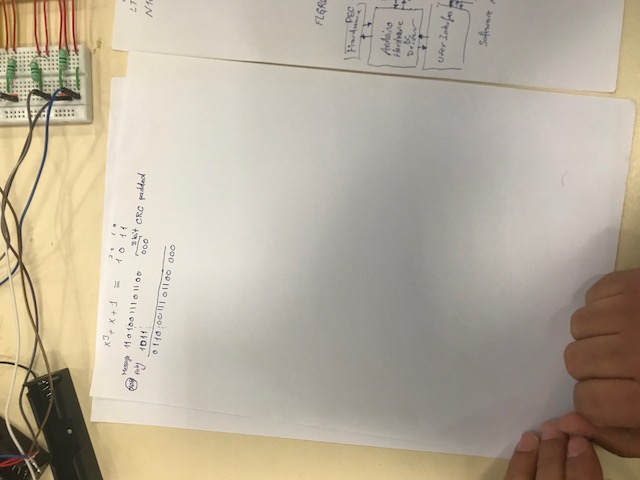 x³ + x + 1 = 1 0 1 1
3 bit
Message 11010011101100 000 CRC padded
XOR Poly 1011
01100011101100 000
LT
N1
FLGR
Hardware PEC
Arduino
Hardware
&
Driver
User Interfac
Software